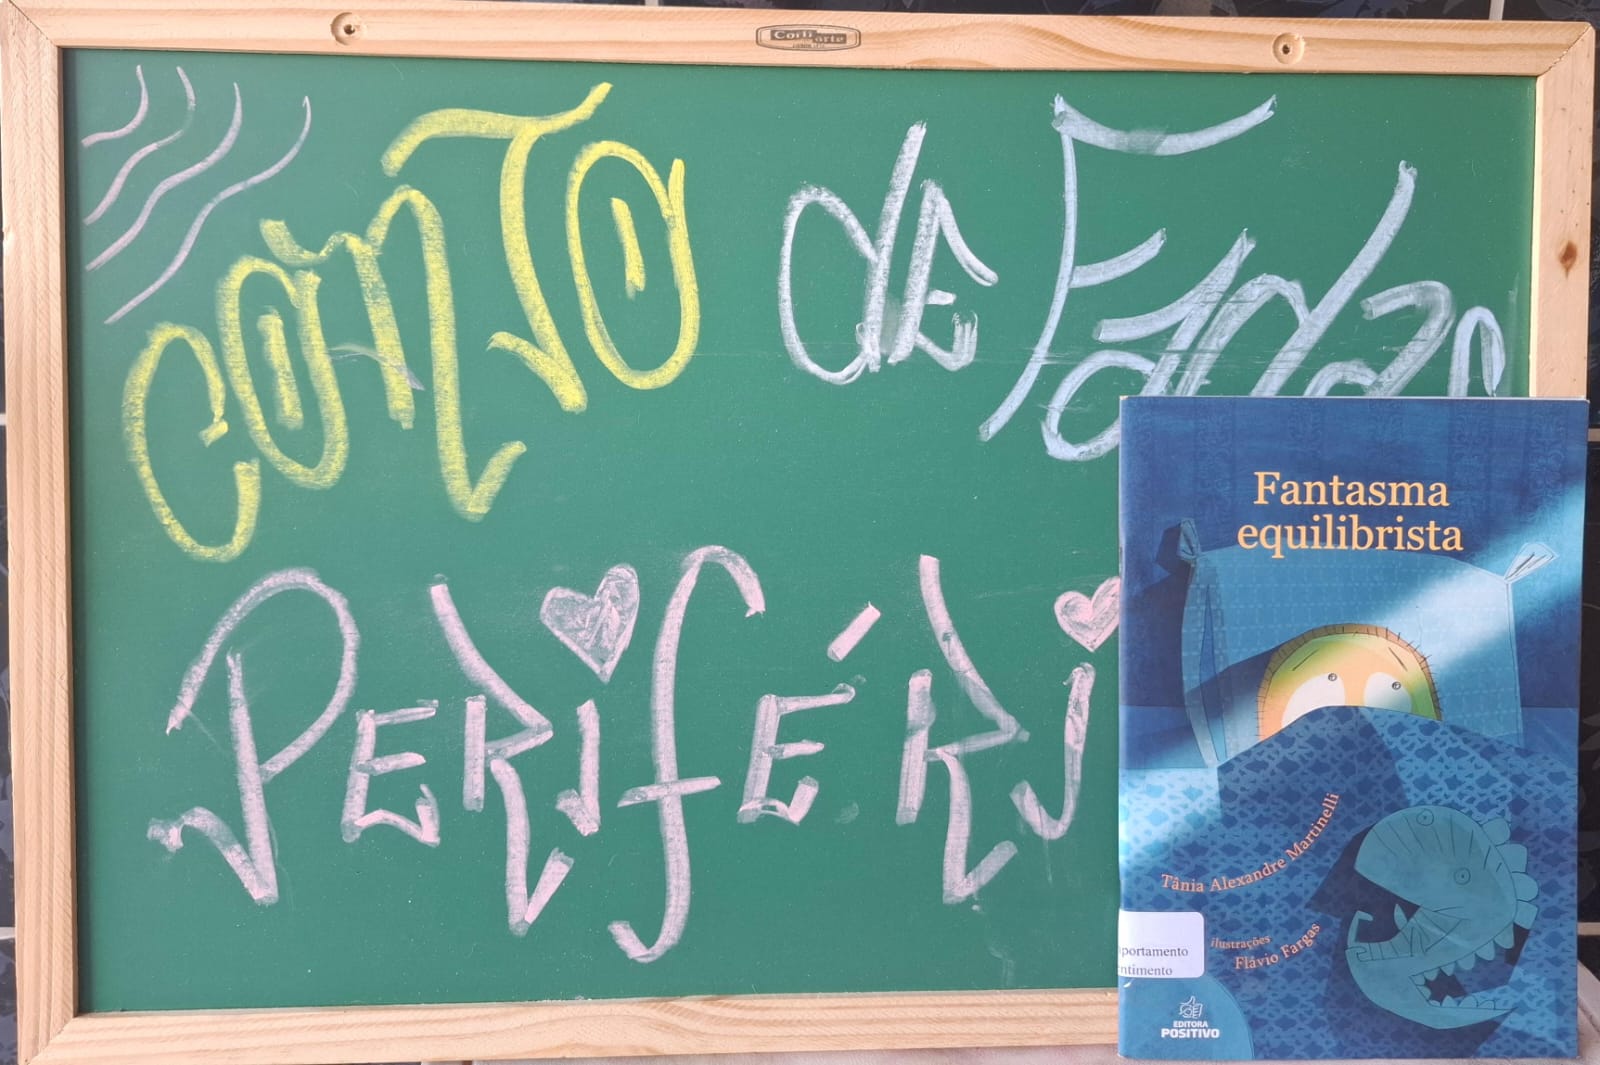 Corti arte
CONTO de Fadas
PERIFÉRi
Fantasma
equilibrista
Tânia Alexandre Martinelli
ilustrações
Flávio Fargas
portamento
ntimento
EDITORA
POSITIVO